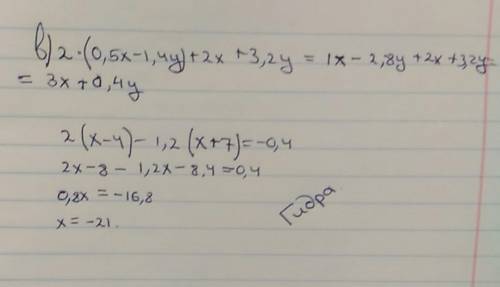 в) 2·(0,5x-1,4y)+2x+3,2y = 1x-2,8y+2x+3,2y=
= 3x+0,4y
2(x-4)-1,2(x+7)=-0,4
2x-8-1,2x-8,4=0,4
0,8x=-16,8
x=-21.
Гидра